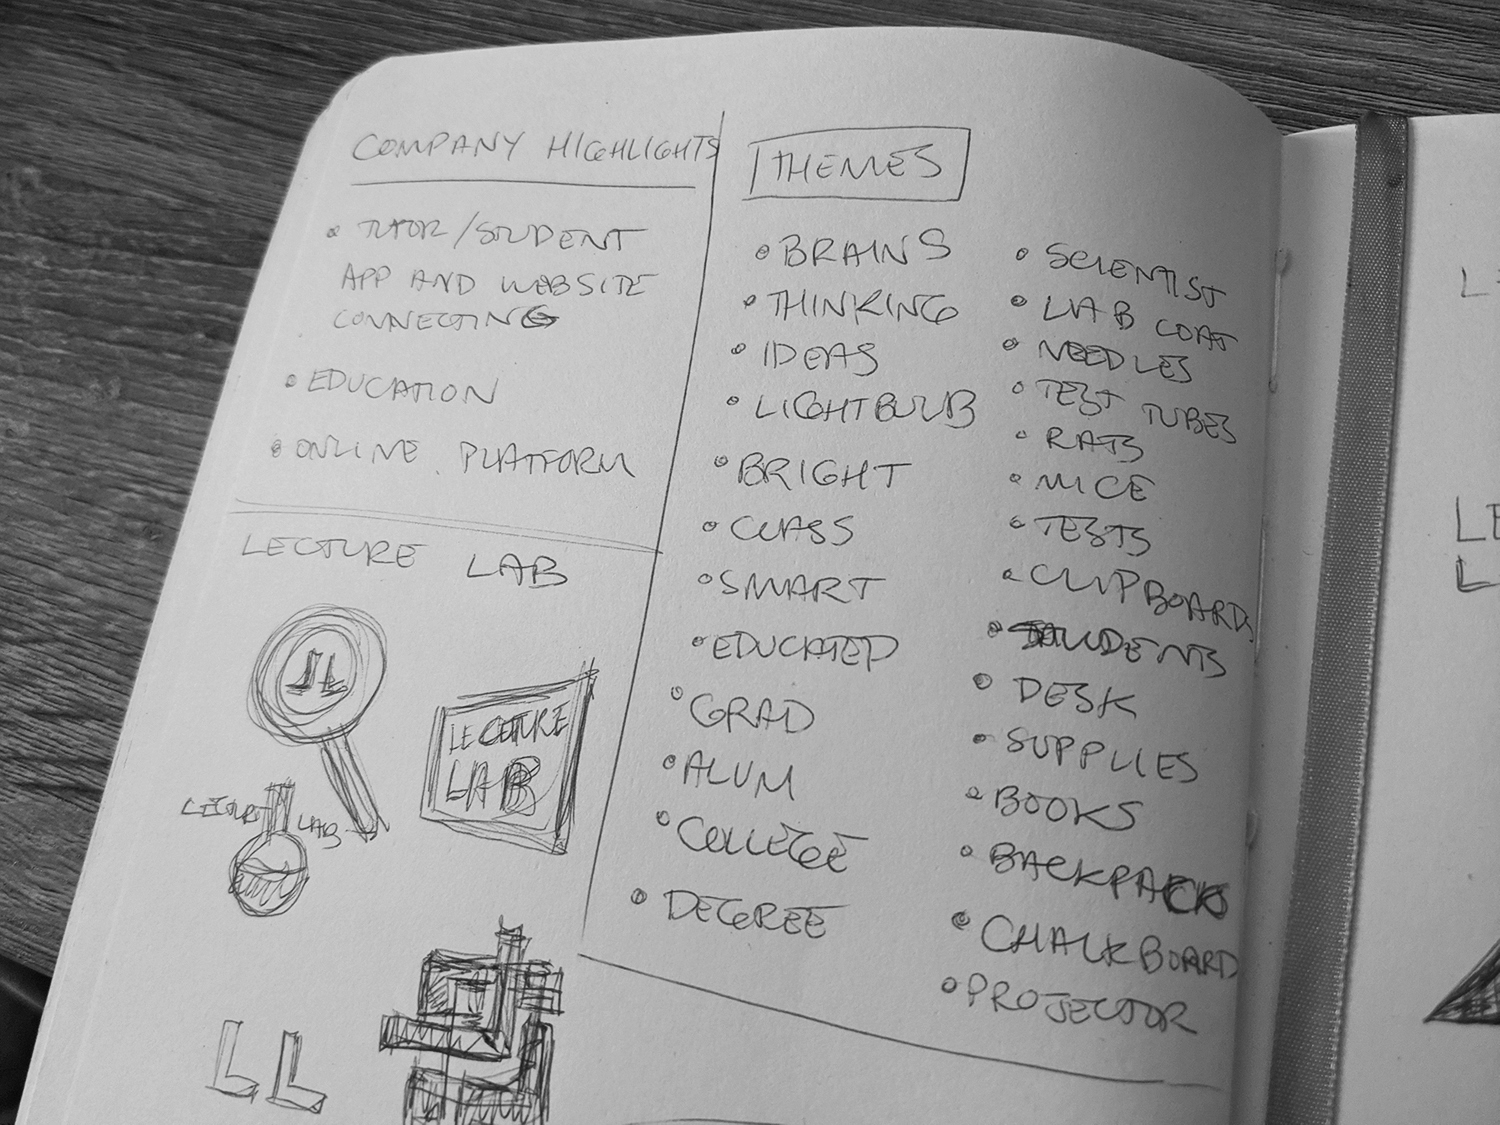 COMPANY HIGHLIGHTS
• TUTOR/STUDENT
APP AND WEBSITE
CONNECTING
• EDUCATION
• ONLINE PLATFORM
LECTURE LAB
LL
LECTURE
LAB
LECTURE LAB
LL
THEMES
• BRAINS
• THINKING
• IDEAS
• LIGHTBULB
• BRIGHT
• CLASS
• SMART
• EDUCATED
• GRAD
• ALUM
• COLLEGE
• DEGREE
• SCIENTIST
• LAB COAT
• NEEDLES
• TEST TUBES
• RATS
• MICE
• TESTS
• CLIPBOARDS
• STUDENTS
• DESK
• SUPPLIES
• BOOKS
• BACKPACKS
• CHALKBOARD
• PROJECTOR
L
LE
L